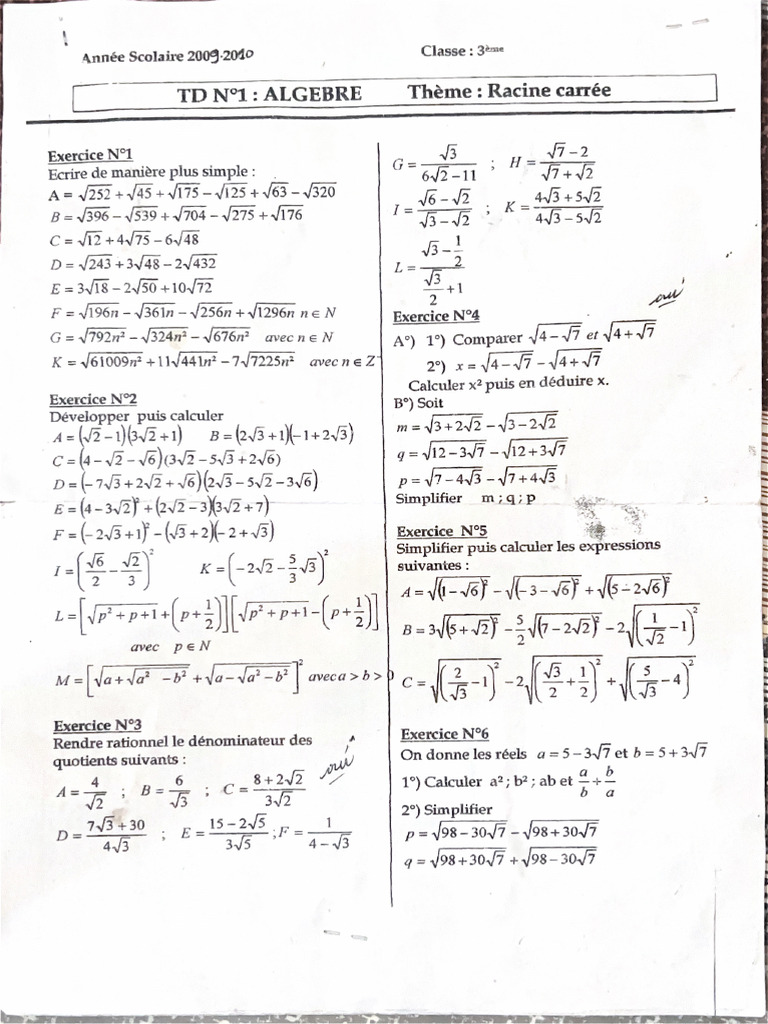 Année Scolaire 2009-2010
Classe : 3ème
TD N°1 : ALGEBRE Thème : Racine carrée
Exercice N°1
Ecrire de manière plus simple :
A = √252 + √45 + √175 − √125 + √63 − √320
B = √396 − √539 + √704 − √275 + √176
C = √12 + 4√75 − 6√48
D = √243 + 3√48 − 2√432
E = 3√18 − 2√50 + 10√72
F = √196n − √361n − √256n + √1296n n ∈ N
G = √792n² − √324n² − √676n² avec n ∈ N
K = √61009n² + 11√441n² − 7√7225n² avec n ∈ Z
Exercice N°2
Développer puis calculer
A = (√2 − 1)(3√2 + 1) B = (2√3 + 1)(−1 + 2√3)
C = (4 − √2 − √6)(3√2 − 5√3 + 2√6)
D = (−7√3 + 2√2 + √6)(2√3 − 5√2 − 3√6)
E = (4 − 3√2)² + (2√2 − 3)(3√2 + 7)
F = (−2√3 + 1)² − (√3 + 2)(−2 + √3)
I = (√6/2 − √2/3)² K = (−2√2 − 5/3 √3)²
L = [√(p² + p + 1) + (p + 1/2)][√(p² + p + 1) − (p + 1/2)]
avec p ∈ N
M = [√(a + √(a² − b²)) + √(a − √(a² − b²))]² avec a > b > 0
Exercice N°3
Rendre rationnel le dénominateur des
quotients suivants :
oui
A = 4/√2 ; B = 6/√3 ; C = (8 + 2√2)/(3√2)
D = (7√3 + 30)/(4√3) ; E = (15 − 2√5)/(3√5) ; F = 1/(4 − √3)
G = √3/(6√2 − 11) ; H = (√7 − 2)/(√7 + √2)
I = (√6 − √2)/(√3 − √2) ; K = (4√3 + 5√2)/(4√3 − 5√2)
L = (√3 − 1/2)/(√3/2 + 1)
oui
Exercice N°4
A°) 1°) Comparer √(4 − √7) et √(4 + √7)
2°) x = √(4 − √7) − √(4 + √7)
Calculer x² puis en déduire x.
B°) Soit
m = √(3 + 2√2) − √(3 − 2√2)
q = √(12 − 3√7) − √(12 + 3√7)
p = √(7 − 4√3) − √(7 + 4√3)
Simplifier m ; q ; p
Exercice N°5
Simplifier puis calculer les expressions
suivantes :
A = √(1 − √6)² − √(−3 − √6)² + √(5 − 2√6)²
B = 3√(5 + √2)² − 5/2 √(7 − 2√2)² − 2√(1/√2 − 1)²
C = √(2/√3 − 1)² − 2√(√3/2 + 1/2)² + √(5/√3 − 4)²
Exercice N°6
On donne les réels a = 5 − 3√7 et b = 5 + 3√7
1°) Calculer a² ; b² ; ab et a/b ÷ b/a
2°) Simplifier
p = √(98 − 30√7) − √(98 + 30√7)
q = √(98 + 30√7) + √(98 − 30√7)